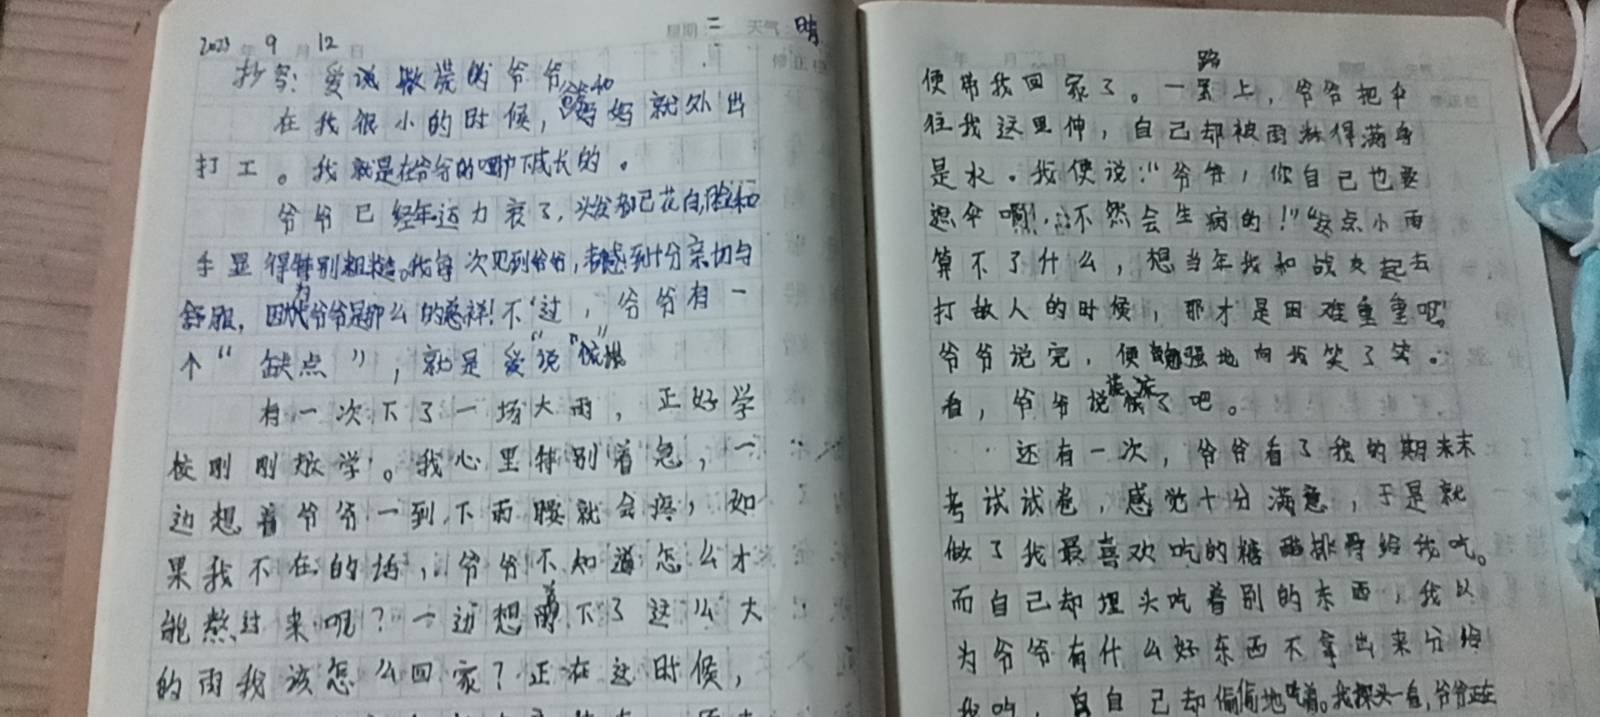 2023年9月12日 星期二 天气 晴
抄写：爱说撒谎的爷爷
爸爸和
在我很小的时候，妈妈就外出
打工。我就是在爷爷的呵护下成长的。
爷爷已经年迈力衰了，头发都已花白，脸和
手显得特别粗糙。我每次见到爷爷，都感到十分亲切与
舒服，因为爷爷是那么的慈祥！不过，爷爷有一
个“缺点”，就是爱“说”“谎”
有一次下了一场大雨，正好学
校刚刚放学。我心里特别着急，一
边想着爷爷一到下雨腰就会疼，如
果我不在的话，爷爷不知道怎么才
能熬过来呢？一边想着下了这么大
的雨我该怎么回家？正在这时候，
年 月 日
路
便带我回家了。一路上，爷爷把伞
往我这里伸，自己却被雨淋得满身
是水。我便说：“爷爷，你自己也要
遮伞啊！不然会生病的！”“这点小雨
算不了什么，想当年我和战友起去
打敌人的时候，那才是困难重重呢”
爷爷说完，便勉强地向我笑了笑。
看，爷爷说谎了吧。
还有一次，爷爷看了我的期末
考试试卷，感觉十分满意，于是就
做了我最喜欢吃的糖醋排骨给我吃。
而自己却埋头吃着别的东西，我以
为爷爷有什么好东西不拿出来分给
我吃，自己却偷偷地吃着。我探头一看，爷爷正在